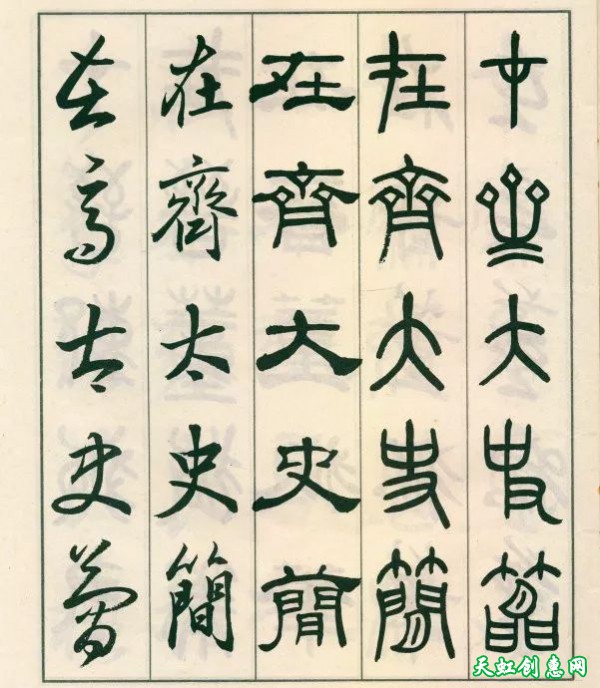 在齊大史簡
在齊大史簡
在齊大史簡
在齊太史簡
在齊太史簡
天虹创惠网